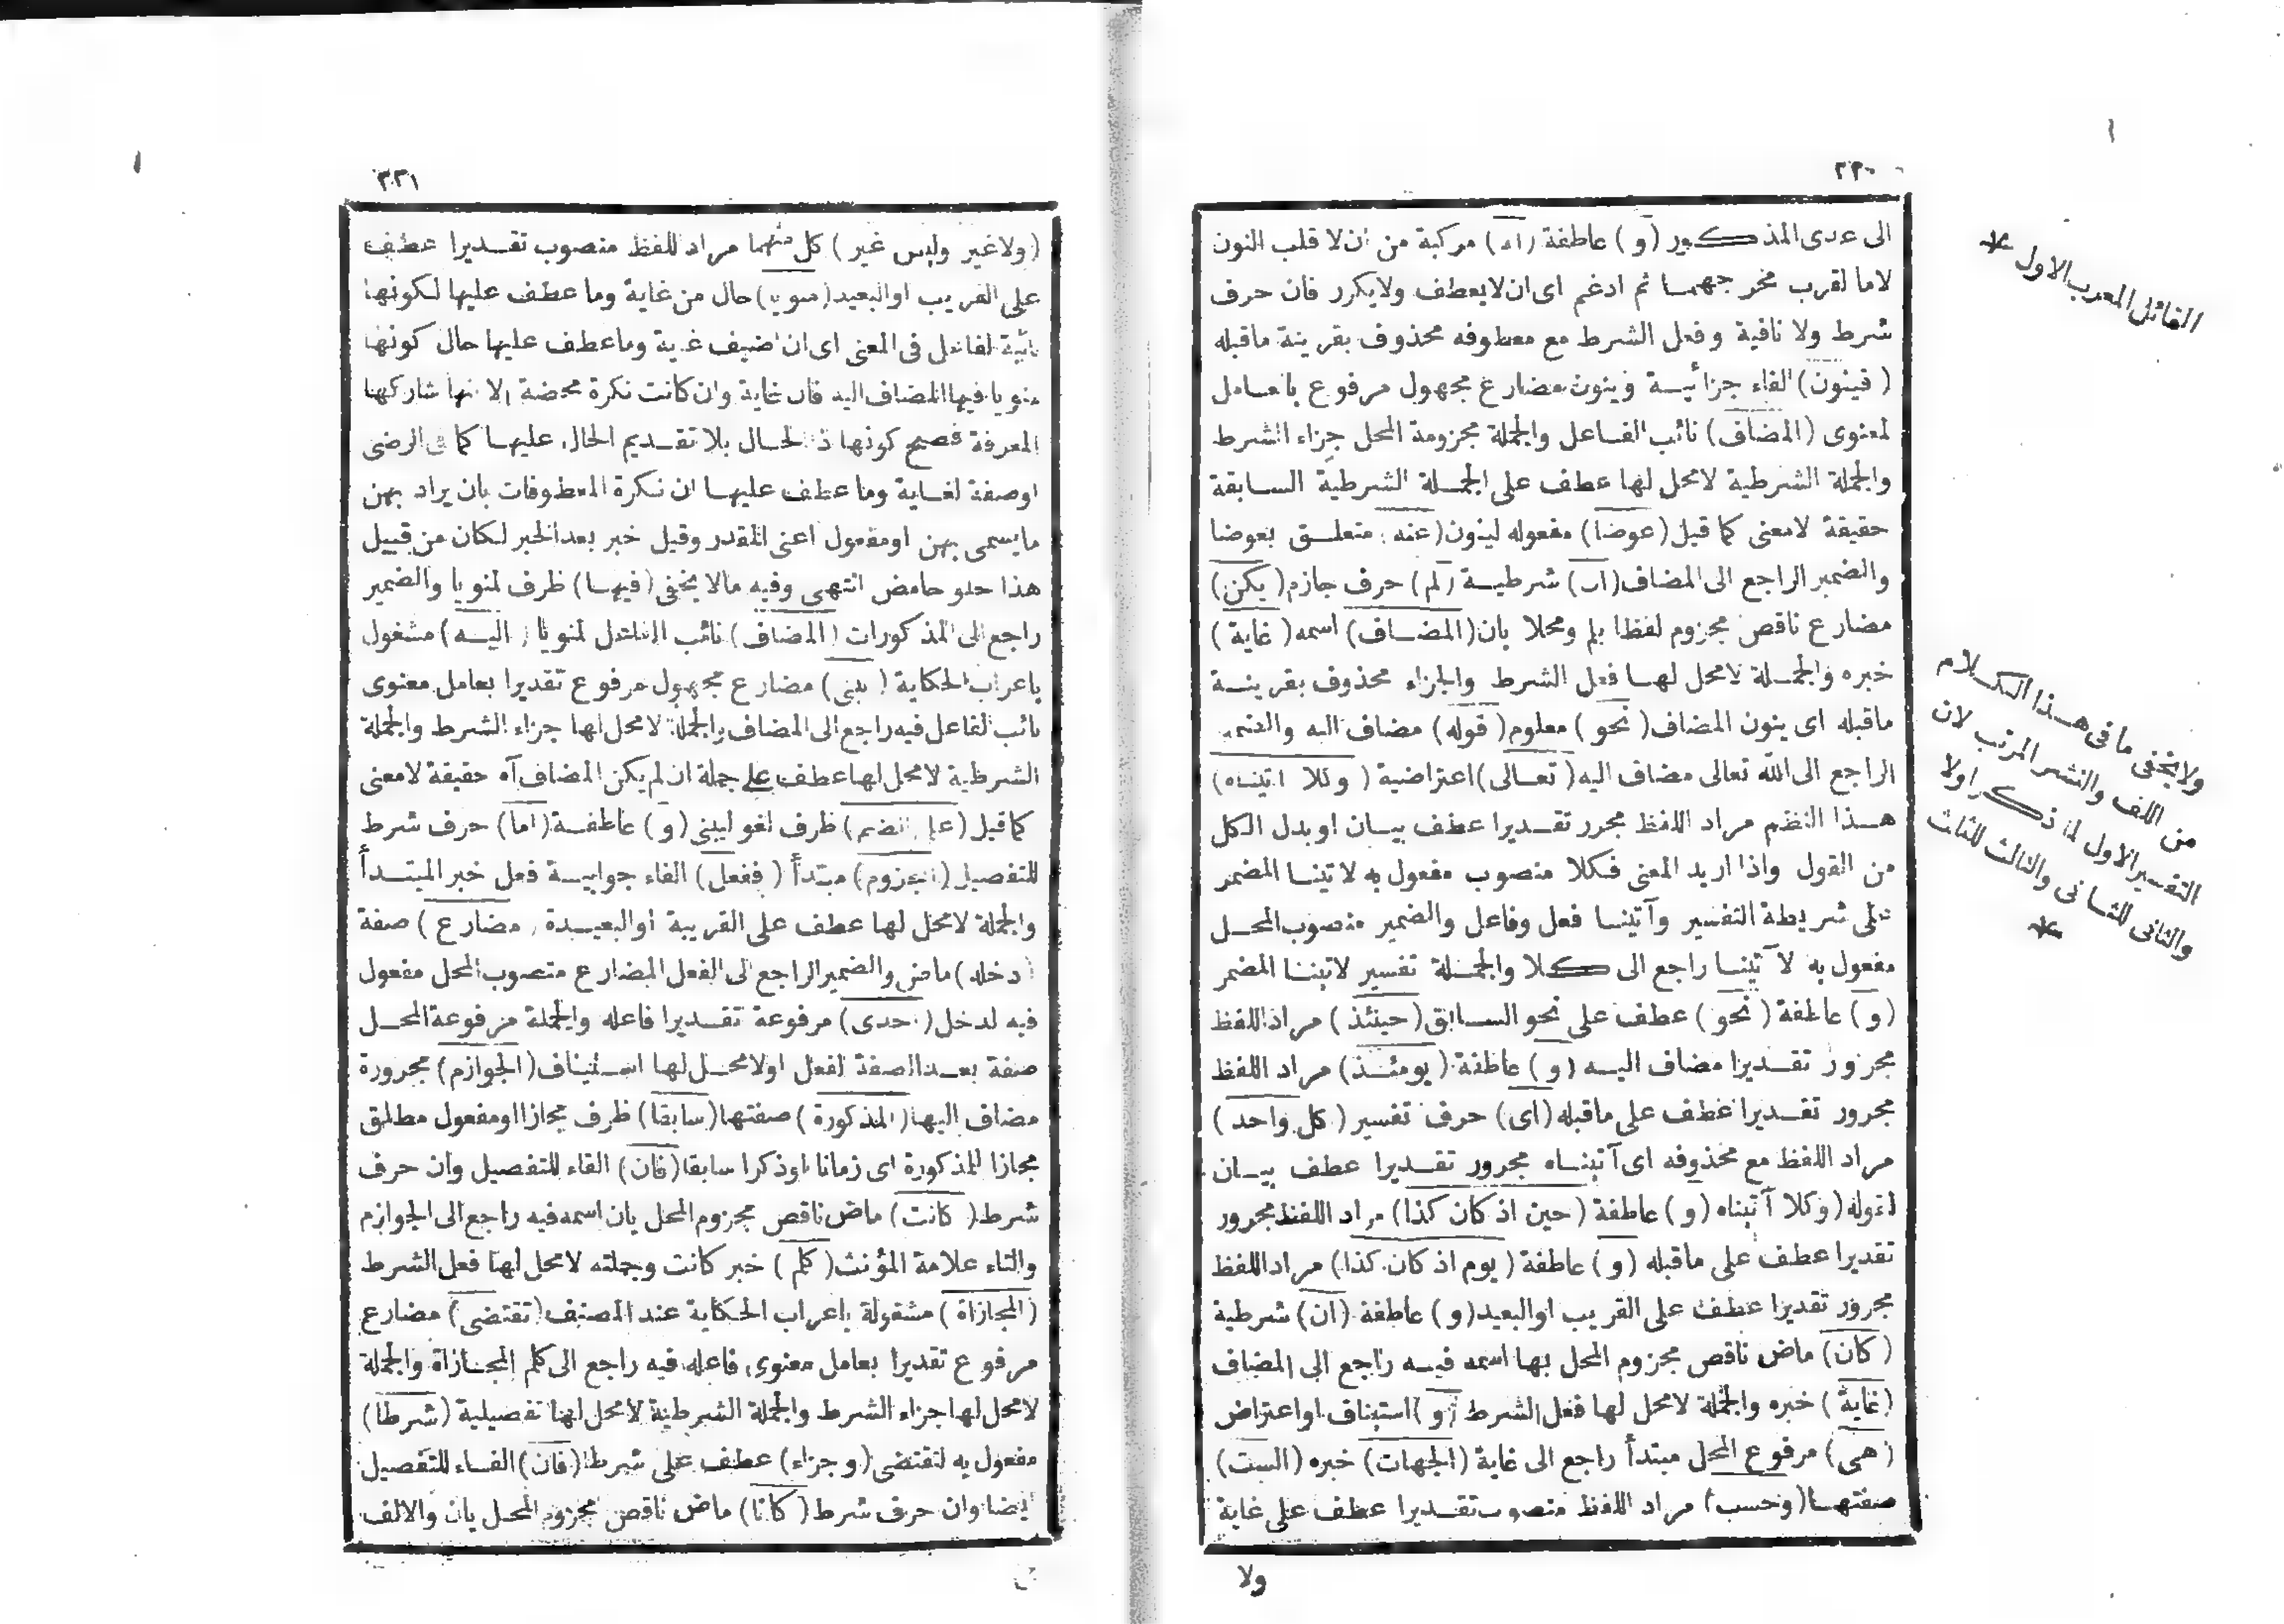 ٢٢٠
الى عدى المذكور (و) عاطفة (الا) مركبة من ان لا قلب النون
لاما لقرب مخرجهما ثم ادغم اى ان لا يعطف ولا يكرر فان حرف
شرط ولا نافية وفعل الشرط مع معطوفه محذوف بقرينة ماقبله
(فينون) الفاء جزائية وينون مضارع مجهول مرفوع بعامل
لمعنوى (المضاف) نائب الفاعل والجملة مجزومة المحل جزاء الشرط
والجملة الشرطية لامحل لها عطف على الجملة الشرطية السابقة
حقيقة لامعنى كما قيل (عوضا) مفعوله لينون (عنه) متعلق بعوضا
والضمير الراجع الى المضاف (ان) شرطية (لم) حرف جازم (يكن)
مضارع ناقص مجزوم لفظا بلم ومحلا بان (المضاف) اسمه (غاية)
خبره والجملة لامحل لها فعل الشرط والجزاء محذوف بقرينة
ماقبله اى ينون المضاف (نحو) معلوم (قوله) مضاف اليه والضمير
الراجع الى الله تعالى مضاف اليه (تعالى) اعتراضية (وكلا آتيناه)
هذا النظم مراد اللفظ مجرر تقديرا عطف بيان او بدل الكل
من القول واذا اريد المعنى فكلا منصوب مفعول به لآتينا المضمر
على شريطة التفسير وآتينا فعل وفاعل والضمير منصوب المحل
مفعول به لآتينا راجع الى كلا والجملة تفسير لآتينا المضمر
(و) عاطفة (نحو) عطف على نحو السابق (حينئذ) مراد اللفظ
مجرور تقديرا مضاف اليه (و) عاطفة (يومئذ) مراد اللفظ
مجرور تقديرا عطف على ماقبله (اى) حرف تفسير (كل واحد)
مراد اللفظ مع محذوفه اى آتيناه مجرور تقديرا عطف بيان
لقوله (وكلا آتيناه (و) عاطفة (حين اذ كان كذا) مراد اللفظ مجرور
تقديرا عطف على ماقبله (و) عاطفة (يوم اذ كان كذا) مراد اللفظ
مجرور تقديرا عطف على القريب او البعيد (و) عاطفة (ان) شرطية
(كان) ماض ناقص مجزوم المحل بها اسمه فيه راجع الى المضاف
(غاية) خبره والجملة لامحل لها فعل الشرط (و) استيناف او اعتراض
(هى) مرفوع المحل مبتدأ راجع الى غاية (الجهات) خبره (الست)
صفتها (وحسب) مراد اللفظ منصوب تقديرا عطف على غاية
ولا
القائل المعرب الاول
ولا يخفى ما فى هذا الكلام
من اللف والنشر المرتب لان
التفسير الاول لما ذكر اولا
والثانى للثانى والثالث للثالث
٢٢١
(ولا غير وليس غير) كل منهما مراد للفظ منصوب تقديرا عطف
على القريب او البعيد (منويا) حال من غاية وما عطف عليها لكونها
نائبة الفاعل فى المعنى اى ان اضيف غاية وما عطف عليها حال كونها
منويا فيها المضاف اليه فان غاية وان كانت نكرة محضة الا انها شاركها
المعرفة فصح كونها ذا الحال بلا تقديم الحال عليها كما فى الرضى
او صفة لغاية وما عطف عليها ان نكرة المعطوفات بان يراد بهن
مايسمى بهن او مفعول اعنى المقدر وقيل خبر بعد الخبر لكان من قبيل
هذا حلو حامض انتهى وفيه مالا يخفى (فيها) ظرف لمنويا والضمير
راجع الى المذكورات (المضاف) نائب الفاعل لمنويا (اليه) مشغول
باعراب الحكاية (يبنى) مضارع مجهول مرفوع تقديرا بعامل معنوى
نائب الفاعل فيه راجع الى المضاف والجملة لامحل لها جزاء الشرط والجملة
الشرطية لامحل لها عطف على جملة ان لم يكن المضاف آه حقيقة لامعنى
كما قيل (على الضم) ظرف لغو ليبنى (و) عاطفة (اما) حرف شرط
للتفصيل (المجزوم) مبتدأ (ففعل) الفاء جوابية فعل خبر المبتدأ
والجملة لامحل لها عطف على القريبة او البعيدة (مضارع) صفة
(دخله) ماض والضمير الراجع الى الفعل المضارع منصوب المحل مفعول
فيه لدخل (احدى) مرفوعة تقديرا فاعله والجملة مرفوعة المحل
صفة بعد الصفة لفعل او لامحل لها استيناف (الجوازم) مجرورة
مضاف اليها (المذكورة) صفتها (سابقا) ظرف مجازا او مفعول مطلق
مجازا للمذكورة اى زمانا او ذكرا سابقا (فان) الفاء للتفصيل وان حرف
شرط (كانت) ماض ناقص مجزوم المحل بان اسمه فيه راجع الى الجوازم
والتاء علامة المؤنث (كلم) خبر كانت وجملته لامحل لها فعل الشرط
(المجازاة) مشغولة باعراب الحكاية عند المصنف (تقتضى) مضارع
مرفوع تقديرا بعامل معنوى فاعله فيه راجع الى كلم المجازاة والجملة
لامحل لها جزاء الشرط والجملة الشرطية لامحل لها تفصيلية (شرطا)
مفعول به لتقتضى (وجزاء) عطف على شرطا (فان) الفاء للتفصيل
ايضا وان حرف شرط (كانا) ماض ناقص مجزوم المحل بان والالف